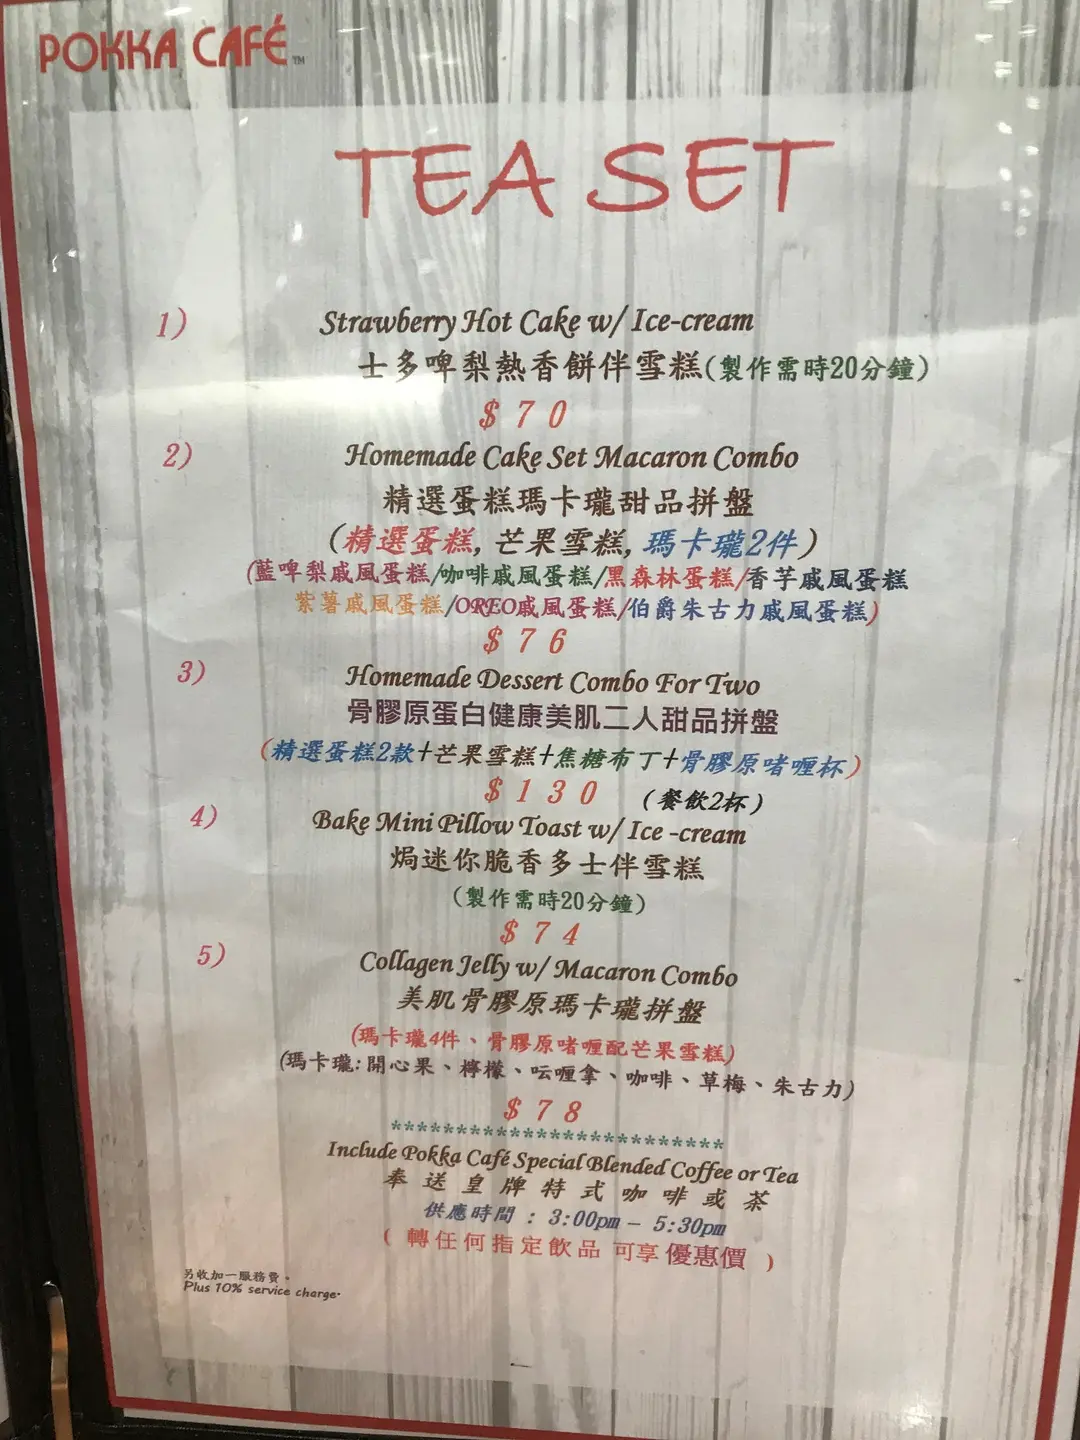 POKKA CAFÉ™
TEA SET
1) Strawberry Hot Cake w/ Ice-cream
士多啤梨熱香餅伴雪糕(製作需時20分鐘)
$70
2) Homemade Cake Set Macaron Combo
精選蛋糕瑪卡瓏甜品拼盤
(精選蛋糕, 芒果雪糕, 瑪卡瓏2件)
(藍啤梨戚風蛋糕/咖啡戚風蛋糕/黑森林蛋糕/香芋戚風蛋糕
紫薯戚風蛋糕/OREO戚風蛋糕/伯爵朱古力戚風蛋糕)
$76
3) Homemade Dessert Combo For Two
骨膠原蛋白健康美肌二人甜品拼盤
(精選蛋糕2款+芒果雪糕+焦糖布丁+骨膠原啫喱杯)
$130 (餐飲2杯)
4) Bake Mini Pillow Toast w/ Ice -cream
焗迷你脆香多士伴雪糕
(製作需時20分鐘)
$74
5) Collagen Jelly w/ Macaron Combo
美肌骨膠原瑪卡瓏拼盤
(瑪卡瓏4件、骨膠原啫喱配芒果雪糕)
(瑪卡瓏:開心果、檸檬、呍喱拿、咖啡、草梅、朱古力)
$78
*************************
Include Pokka Café Special Blended Coffee or Tea
奉送皇牌特式咖啡或茶
供應時間 : 3:00pm – 5:30pm
( 轉任何指定飲品 可享優惠價 )
另收加一服務費。
Plus 10% service charge.